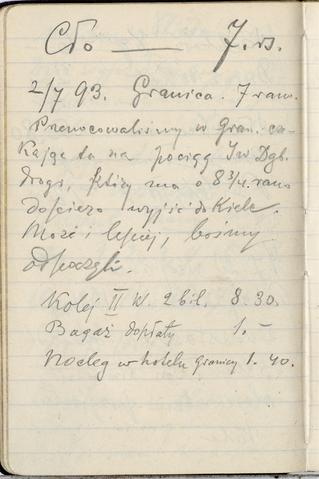 Cło — 7. rs.
2/7 93. Granica. 7 rano.
Przenocowaliśmy w Gran. cze-
kając tu na pociąg Iw Dgb.
drogi, który ma o 8 3/4 rano
dopiero wyjść do Kielc.
Może i lepiej, bośmy
odpoczęli.
Kolej II kl. 2 bil. 8. 30.
Bagaż dopłaty 1. –
Nocleg w hotelu granicy 1. 40.